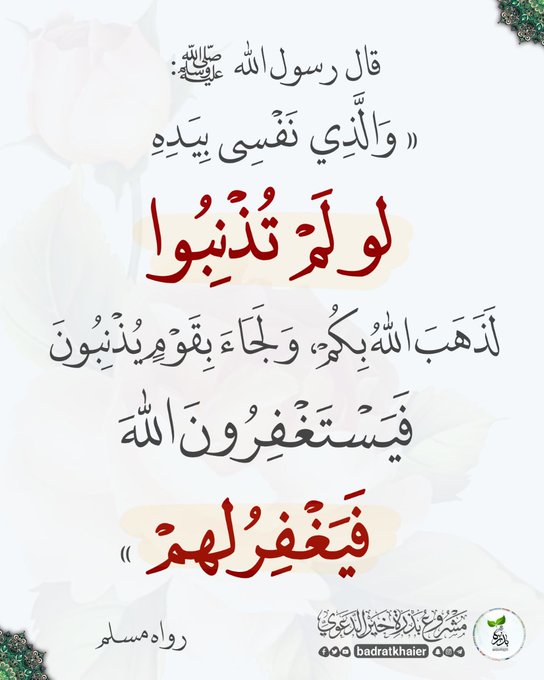 قال رسول الله ﷺ:
« وَالَّذِي نَفْسِي بِيَدِهِ
لو لَمْ تُذْنِبُوا
لَذَهَبَ اللهُ بِكُمْ، وَلَجَاءَ بِقَوْمٍ يُذْنِبُونَ
فَيَسْتَغْفِرُونَ اللهَ
فَيَغْفِرُ لهمْ »
رواه مسلم
مشروع بذرة خير الدعوي
badratkhaier
بذرة